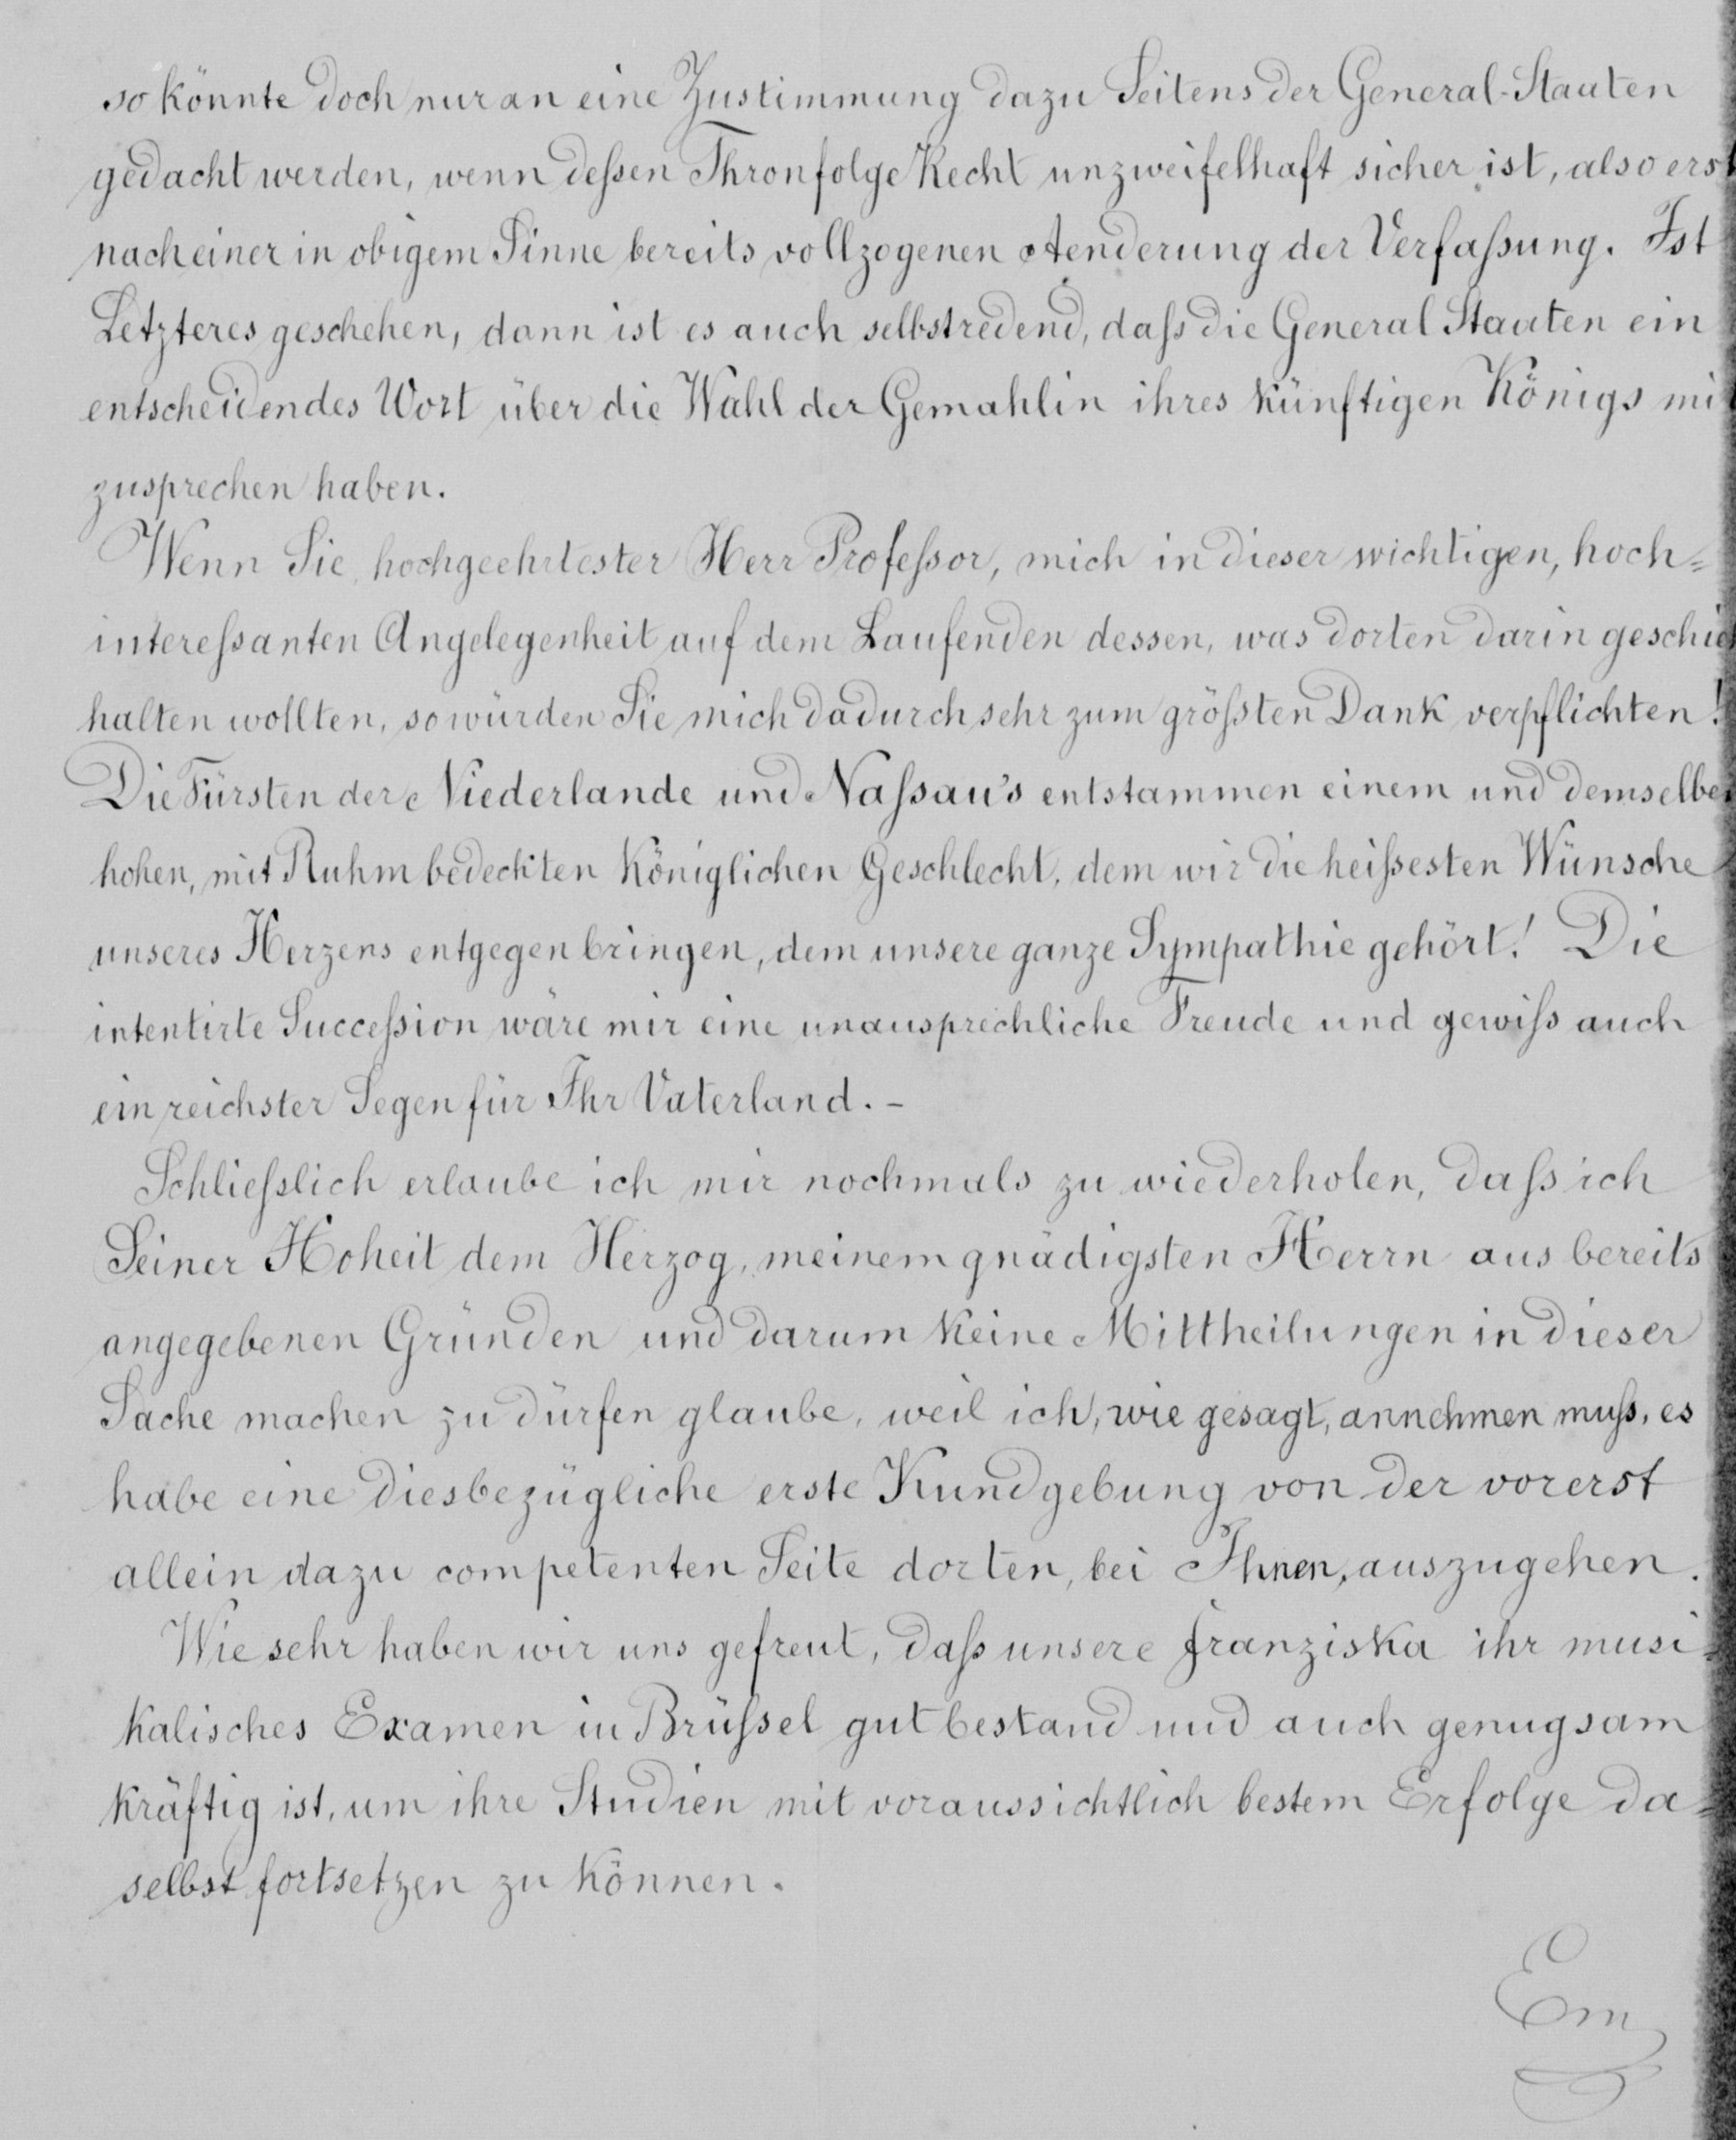 so könnte doch nur an eine Zustimmung dazu Seitens der General-Staaten
gedacht werden, wenn deſsen Thronfolge Recht unzweifelhaft sicher ist, also erst
nach einer in obigem Sinne bereits vollzogenen Aenderung der Verfaſsung. Ist
Letzteres geschehen, dann ist es auch selbstredend, daſs die General Staaten ein
entscheidendes Wort über die Wahl der Gemahlin ihres künftigen Königs mit
zusprechen haben.
Wenn Sie, hochgeehrtester Herr Profeſsor, mich in dieser wichtigen, hoch=
intereſsanten Angelegenheit auf dem Laufenden dessen, was dorten darin geschieh
halten wollten, so würden Sie mich dadurch sehr zum gröſsten Dank verpflichten!
Die Fürsten der Niederlande und Naſsau's entstammen einem und demselben
hohen, mit Ruhm bedeckten Königlichen Geschlecht, dem wir die heiſsesten Wünsche
unseres Herzens entgegenbringen, dem unsere ganze Sympathie gehört! Die
intentirte Succeſsion wäre mir eine unausprechliche Freude und gewiſs auch
ein reichster Segen für Ihr Vaterland. –
Schlieſslich erlaube ich mir nochmals zu wiederholen, daſs ich
Seiner Hoheit dem Herzog, meinem gnädigsten Herrn aus bereits
angegebenen Gründen und darum keine Mittheilungen in dieser
Sache machen zu dürfen glaube, weil ich, wie gesagt, annehmen muſs, es
habe eine diesbezügliche erste Kundgebung von der vorerst
allein dazu competenten Seite dorten, bei Ihnen, auszugehen.
Wie sehr haben wir uns gefreut, daſs unsere Franziska ihr musi=
kalisches Examen in Brüſsel gut bestand und auch genugsam
kräftig ist, um ihre Studien mit voraussichtlich bestem Erfolge da=
selbst fortsetzen zu können.
Em